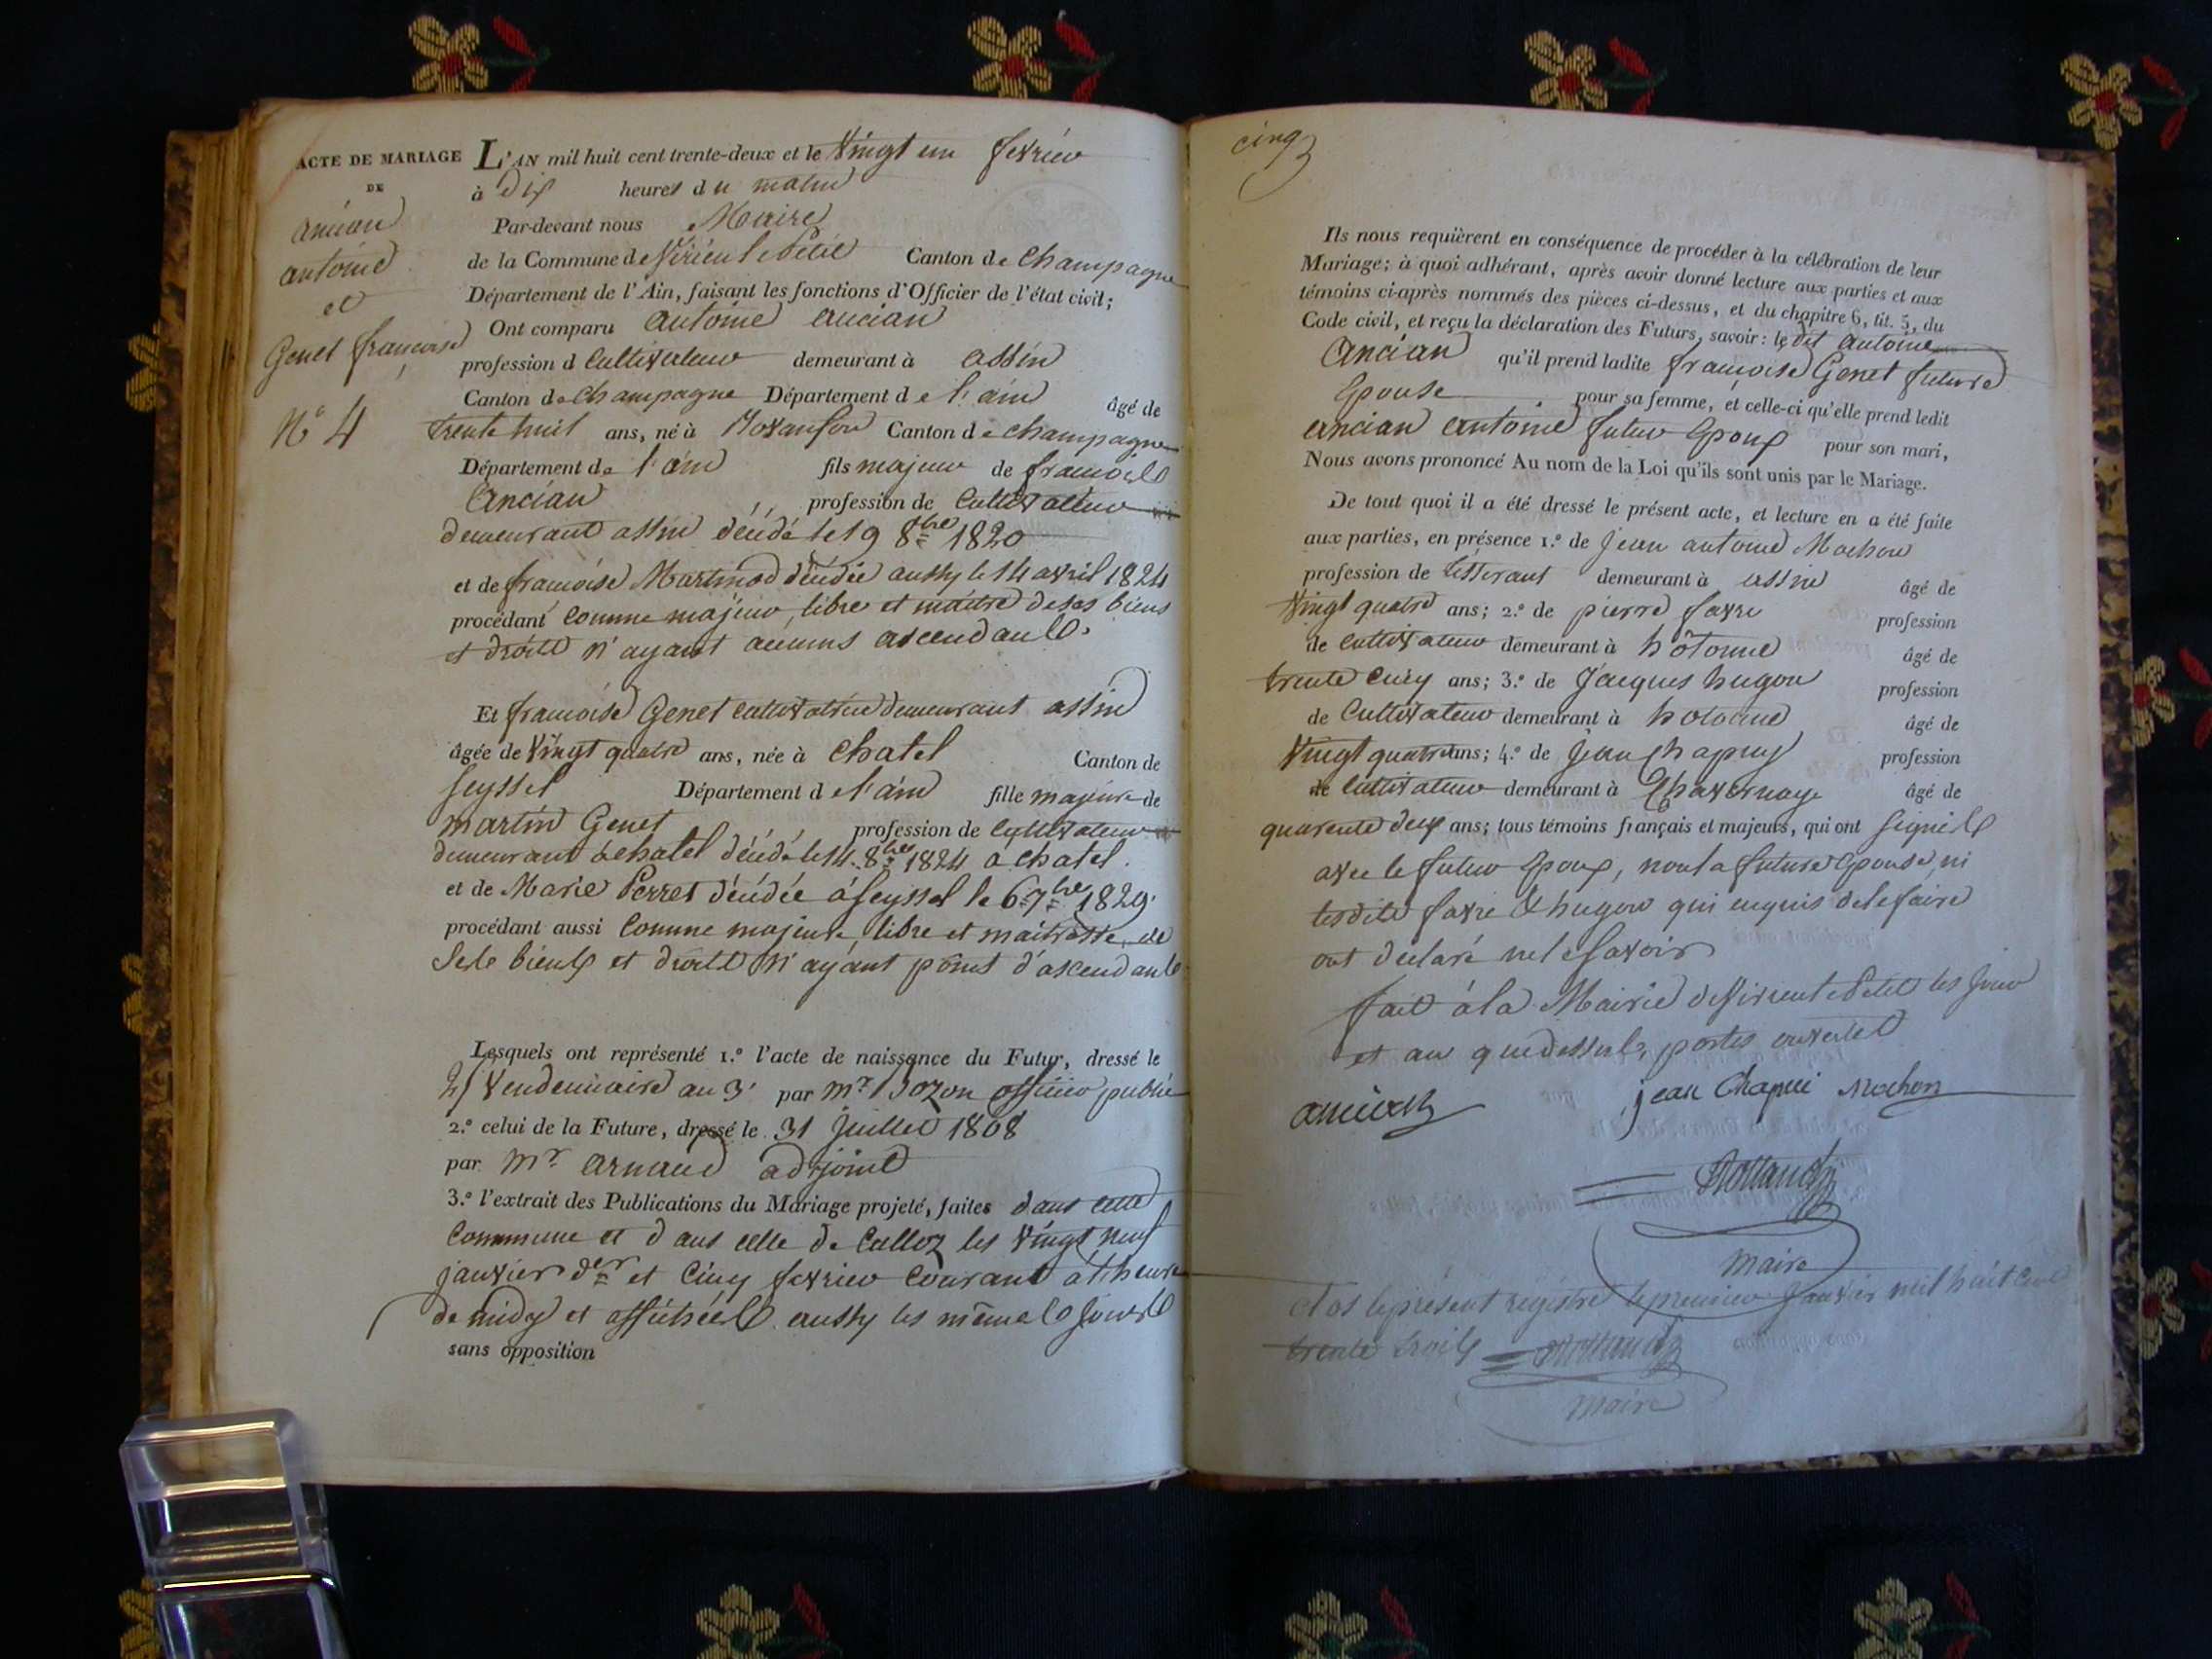 ACTE DE MARIAGE
DE
ancian
antoine
et
Genet françoise
N° 4
L'AN mil huit cent trente-deux et le Vingt un fevrier
à Dix heures du matin
Par-devant nous Maire
de la Commune de Virieu le Petit Canton de Champagne
Département de l'Ain, faisant les fonctions d'Officier de l'état civil;
Ont comparu antoine ancian
profession d Cultivateur demeurant à assin
Canton de Champagne Département de l'ain âgé de
trente huit ans, né à Canton de Champagne
Département de l'ain fils majeur de francois
Ancian profession de Cultivateur
demeurant assin décédé le 19 8bre 1820
et de francoise Martinod décédée aussy le 14 avril 1824
procédant comme majeur, libre et maitre de ses biens
et droits n'ayant aucuns ascendants.
Et francoise Genet cultivatrice demeurant assin
âgée de Vingt quatre ans, née à Chatel Canton de
Seyssel Département de l'ain fille majeure de
martin Genet profession de Cultivateur
demeurant à chatel décédé le 14 8bre 1824 a chatel.
et de Marie Perret décédée à Seyssel le 6 7bre 1829.
procédant aussi comme majeure, libre et maitresse de
ses biens et droits n'ayant point d'ascendants
Lesquels ont représenté 1.° l'acte de naissance du Futur, dressé le
Vendemiaire an 3e par mr officier public
2.° celui de la Future, dressé le 31 Juillet 1808
par mr arnaud adjoint
3.° l'extrait des Publications du Mariage projeté, faites dans cette
Commune et dans celle de Culloz les Vingt neuf
janvier der et Cinq fevrier Courant à l'heure
de midy et affichées aussy les mêmes jours
sans opposition
cinq
Ils nous requièrent en conséquence de procéder à la célébration de leur
Mariage; à quoi adhérant, après avoir donné lecture aux parties et aux
témoins ci-après nommés des pièces ci-dessus, et du chapitre 6, tit. 5, du
Code civil, et reçu la déclaration des Futurs, savoir: le dit antoine
Ancian qu'il prend ladite françoise Genet future
Epouse pour sa femme, et celle-ci qu'elle prend ledit
ancian antoine futur Epoux pour son mari,
Nous avons prononcé Au nom de la Loi qu'ils sont unis par le Mariage.
De tout quoi il a été dressé le présent acte, et lecture en a été faite
aux parties, en présence 1.° de Jean antoine Mochon
profession de tisserant demeurant à assin âgé de
Vingt quatre ans; 2.° de pierre favre profession
de cultivateur demeurant à hôtonne âgé de
trente Cinq ans; 3.° de Jacques hugon profession
de Cultivateur demeurant à hotonne âgé de
Vingt quatre ans; 4.° de Jean Chapuy profession
de Cultivateur demeurant à Chavornay âgé de
quarente deux ans; tous témoins français et majeurs, qui ont signés
avec le futur Epoux, non la future Epouse, ni
lesdits favre & hugon qui enquis de le faire
ont déclaré ne le savoir
fait à la Mairie de Virieu le Petit les jour
et an que dessus, portes ouvertes
ancian jean Chapui Mochon
maire
Clos le présent registre le premier Janvier mil huit cent
trente trois
maire